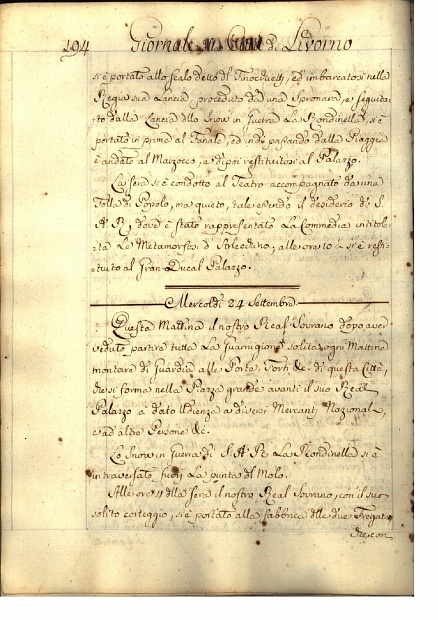 194 Giornale di Livorno
si è portato allo scalo detto di Finocchietti, ed imbarcatosi nella
Regia sua Lancia proceduto da una Spronara, e seguita-
to dalla Lancia dello Snow in Guerra La Rondinella, si è
portato in prima al Fanale, ed indi passando dalla Piaggia
è andato al Marzocco, e dipoi restituitosi al Palazzo.
La sera si è condotto al Teatro accompagnato da una
Folla di Popolo, ma quieto, tale essendo il desiderio di S.
A. R. dov'è stato rappresentato La Commedia intitola-
ta Le Metamorfosi d'Arlecchino; alle ore 10 ½ si è resti-
tuito al Gran-Ducal Palazzo.
Mercoldì 24 Settembre
Questa Mattina il nostro Real Sovrano dopo aver
veduto partire tutta La Guarnigione solita ogni Mattina
montare di Guardia alle Porte, Forti &c. di questa Città,
che si forma nella Piazza grande avanti il suo Real
Palazzo à dato Udienza a diversi Mercanti Nazionali,
e ad altre Persone &c.
Lo Snow in Guerra di S. A. R. La Rondinella si è
intraversato fuori La punta di Molo.
Alle ore 4 della sera il nostro Real Sovrano, con il suo
solito corteggio, si è portato alla fabbrica delle due Fregate
che con